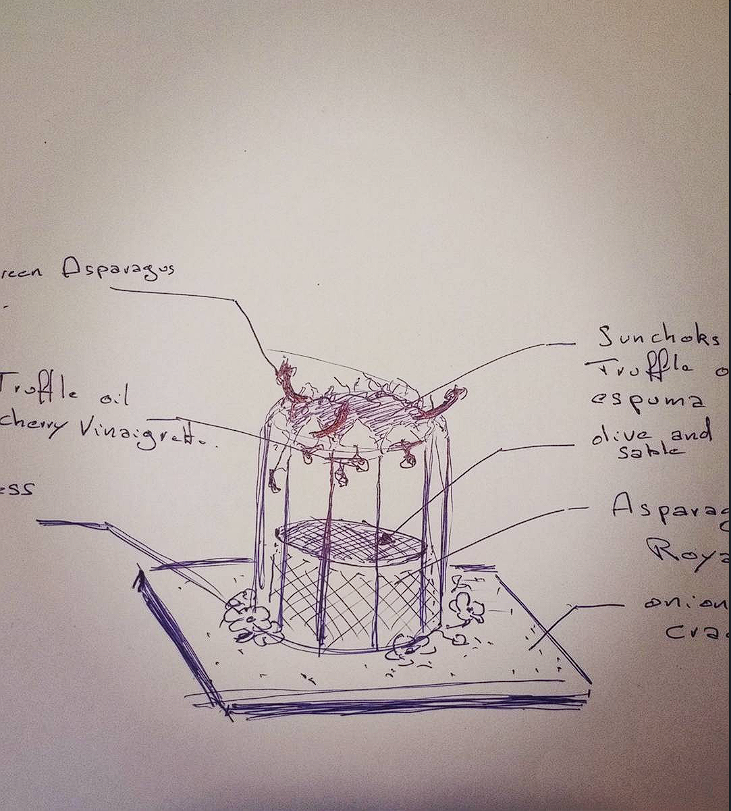 reen Asparagus
Truffle oil
cherry Vinaigrett..
ess
Sunchoks
Truffle o
espuma
olive and
sable
Asparag
Roya
onion
Crac